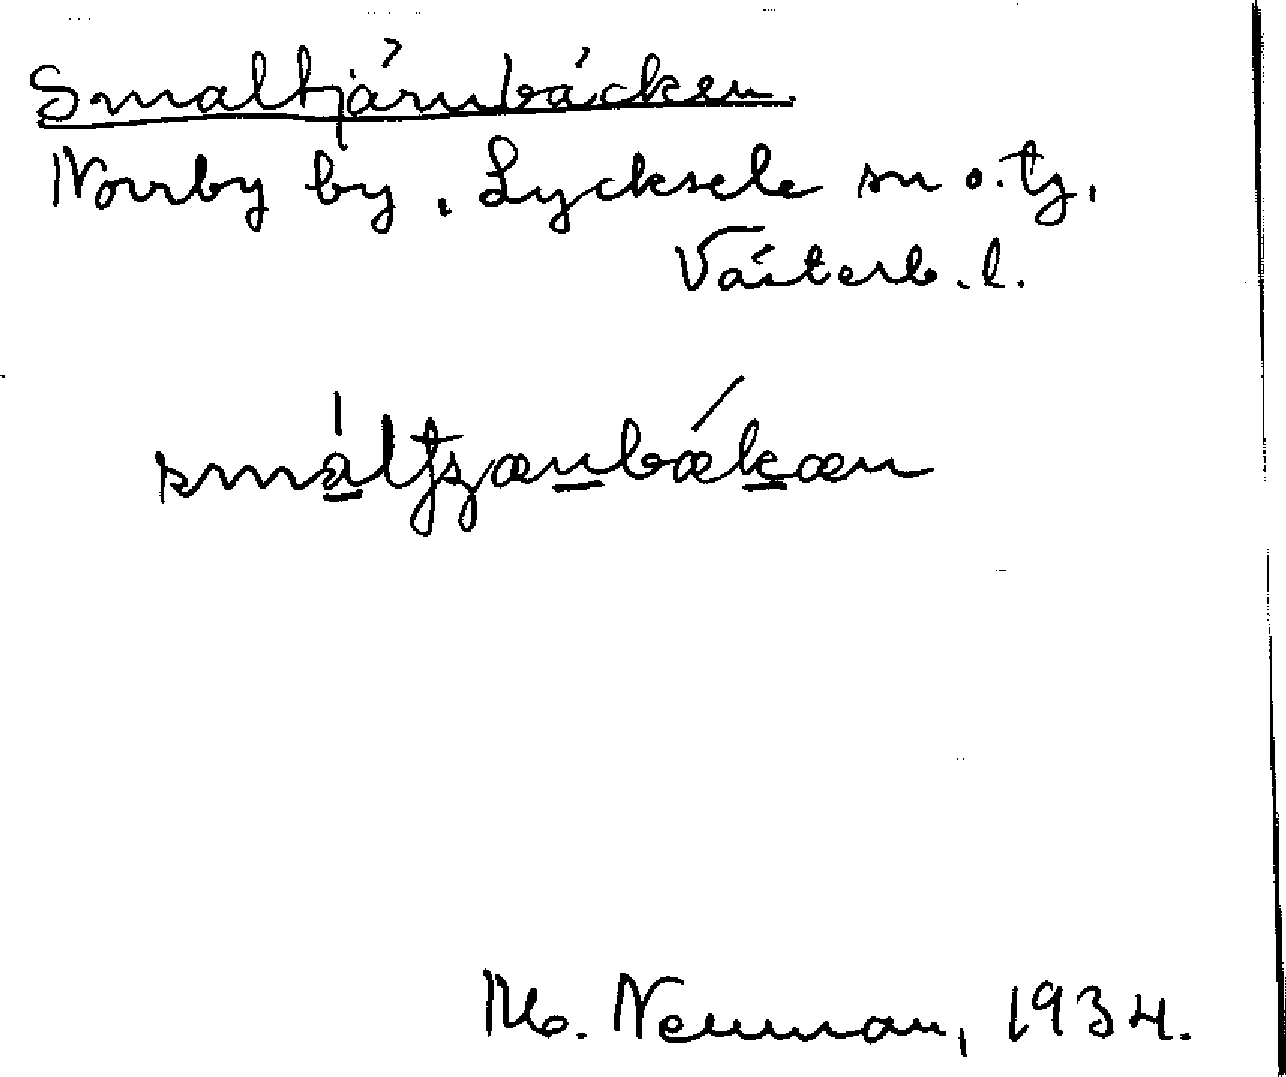 Smaltjärnbäcken.
Norrby by, Lycksele sn o. tg,
Västerb. l.
Neuman, 1934.